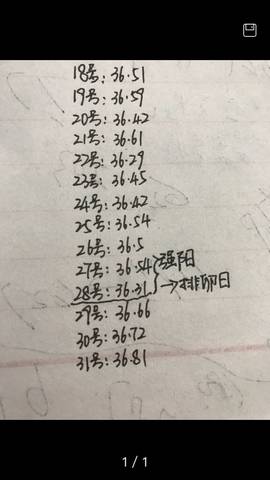 18号: 36.51
19号: 36.59
20号: 36.42
21号: 36.61
22号: 36.29
23号: 36.45
24号: 36.42
25号: 36.54
26号: 36.5
27号: 36.54 强阳
28号: 36.31 →排卵日
29号: 36.66
30号: 36.72
31号: 36.81
1 / 1